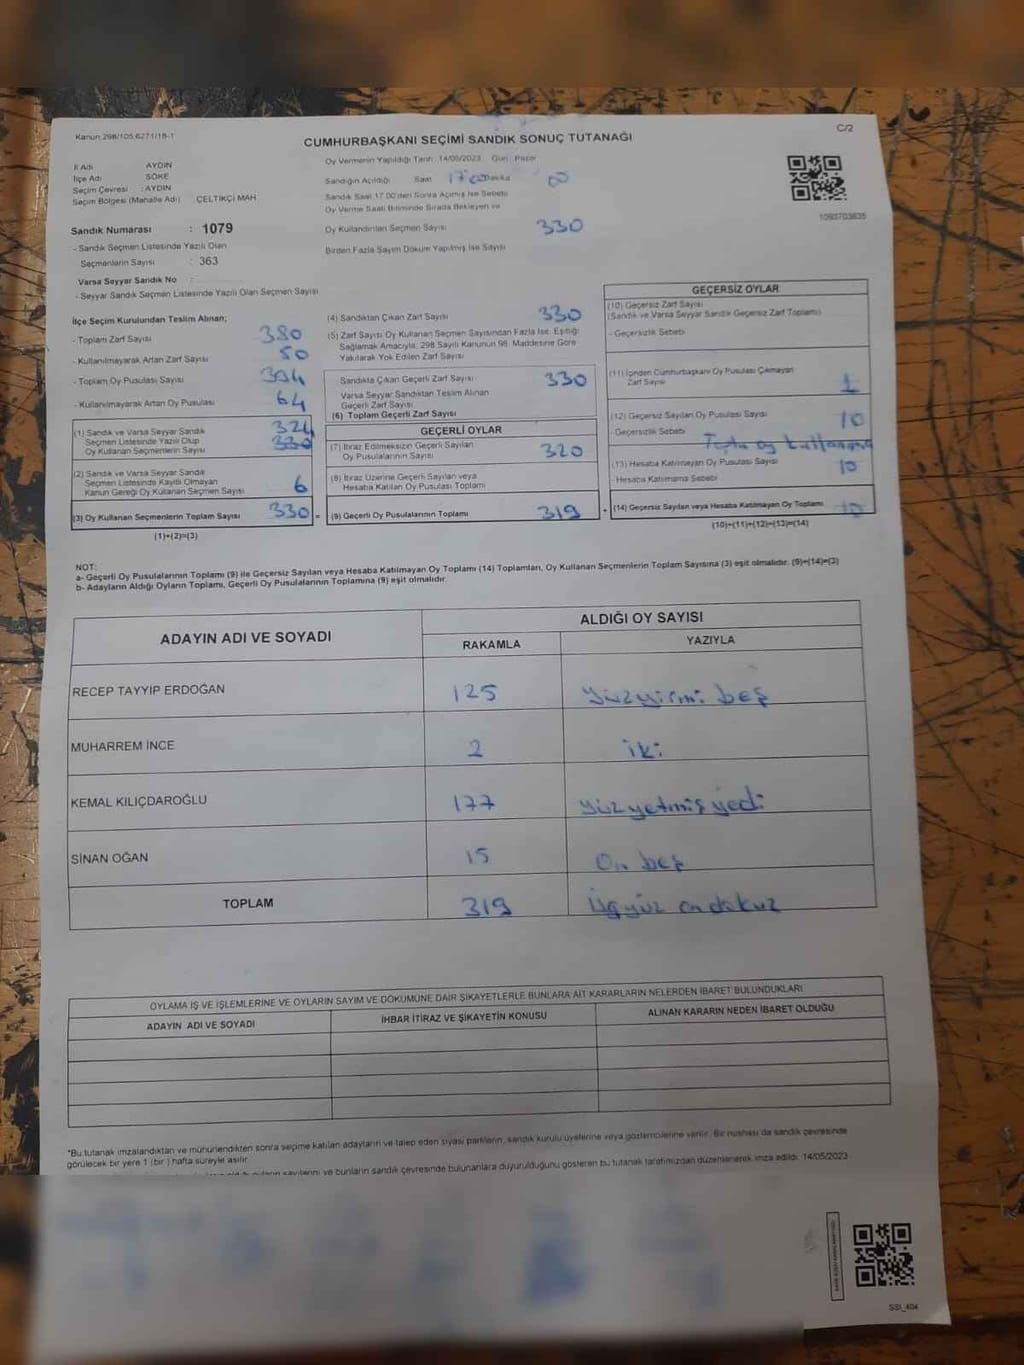 Kanun:298/105,6271/18-1
C/2
CUMHURBAŞKANI SEÇİMİ SANDIK SONUÇ TUTANAĞI
İl Adı AYDIN
İlçe Adı SÖKE
Seçim Çevresi : AYDIN
Seçim Bölgesi (Mahalle Adı) ÇELTİKÇİ MAH
Sandık Numarası : 1079
- Sandık Seçmen Listesinde Yazılı Olan
Seçmenlerin Sayısı : 363
Varsa Seyyar Sandık No
- Seyyar Sandık Seçmen Listesinde Yazılı Olan Seçmen Sayısı
Oy Vermenin Yapıldığı Tarih: 14/05/2023 Gün: Pazar
Sandığın Açıldığı Saat 17 00 Dakika 00
Sandık Saat 17.00'den Sonra Açılmış İse Sebebi
Oy Verme Saati Bitiminde Sırada Bekleyen ve
Oy Kullandırılan Seçmen Sayısı 330
Birden Fazla Sayım Döküm Yapılmış İse Sayısı
1093703635
İlçe Seçim Kurulundan Teslim Alınan;
- Toplam Zarf Sayısı 380
- Kullanılmayarak Artan Zarf Sayısı 50
- Toplam Oy Pusulası Sayısı 394
- Kullanılmayarak Artan Oy Pusulası 64
(1) Sandık ve Varsa Seyyar Sandık 324
Seçmen Listesinde Yazılı Olup 330
Oy Kullanan Seçmenlerin Sayısı
(2) Sandık ve Varsa Seyyar Sandık
Seçmen Listesinde Kayıtlı Olmayan
Kanun Gereği Oy Kullanan Seçmen Sayısı 6
(3) Oy Kullanan Seçmenlerin Toplam Sayısı 330 =
(1)+(2)=(3)
(4) Sandıktan Çıkan Zarf Sayısı 330
(5) Zarf Sayısı Oy Kullanan Seçmen Sayısından Fazla İse, Eşitliği
Sağlamak Amacıyla; 298 Sayılı Kanunun 98. Maddesine Göre
Yakılarak Yok Edilen Zarf Sayısı
Sandıkta Çıkan Geçerli Zarf Sayısı 330
Varsa Seyyar Sandıktan Teslim Alınan
Geçerli Zarf Sayısı
(6) Toplam Geçerli Zarf Sayısı
GEÇERLİ OYLAR
(7) İtiraz Edilmeksizin Geçerli Sayılan 320
Oy Pusulalarının Sayısı
(8) İtiraz Üzerine Geçerli Sayılan veya
Hesaba Katılan Oy Pusulası Toplamı
(9) Geçerli Oy Pusulalarının Toplamı 319 +
GEÇERSİZ OYLAR
(10) Geçersiz Zarf Sayısı
(Sandık ve Varsa Seyyar Sandık Geçersiz Zarf Toplamı)
- Geçersizlik Sebebi
(11) İçinden Cumhurbaşkanı Oy Pusulası Çıkmayan
Zarf Sayısı 1
(12) Geçersiz Sayılan Oy Pusulası Sayısı 10
- Geçersizlik Sebebi oy
(13) Hesaba Katılmayan Oy Pusulası Sayısı 10
- Hesaba Katılmama Sebebi
(14) Geçersiz Sayılan veya Hesaba Katılmayan Oy Toplamı 10
(10)+(11)+(12)+(13)=(14)
NOT:
a- Geçerli Oy Pusulalarının Toplamı (9) ile Geçersiz Sayılan veya Hesaba Katılmayan Oy Toplamı (14) Toplamları, Oy Kullanan Seçmenlerin Toplam Sayısına (3) eşit olmalıdır. (9)+(14)=(3)
b- Adayların Aldığı Oyların Toplamı, Geçerli Oy Pusulalarının Toplamına (9) eşit olmalıdır.
ADAYIN ADI VE SOYADI
ALDIĞI OY SAYISI
RAKAMLA YAZIYLA
RECEP TAYYİP ERDOĞAN 125 Yüzyirmi beş
MUHARREM İNCE 2 iki
KEMAL KILIÇDAROĞLU 177 Yüz yetmiş yedi
SİNAN OĞAN 15 On beş
TOPLAM 319 Üçyüz ondokuz
OYLAMA İŞ VE İŞLEMLERİNE VE OYLARIN SAYIM VE DÖKÜMÜNE DAİR ŞİKAYETLERLE BUNLARA AİT KARARLARIN NELERDEN İBARET BULUNDUKLARI
ADAYIN ADI VE SOYADI İHBAR İTİRAZ VE ŞİKAYETİN KONUSU ALINAN KARARIN NEDEN İBARET OLDUĞU
*Bu tutanak imzalandıktan ve mühürlendikten sonra seçime katılan adayların ve talep eden siyasi partilerin, sandık kurulu üyelerine veya gözlemcilerine verilir. Bir nüshası da sandık çevresinde
görülecek bir yere 1 (bir) hafta süreyle asılır.
sayılarını ve bunların sandık çevresinde bulunanlara duyurulduğunu gösteren bu tutanak tarafımızdan düzenlenerek imza edildi. 14/05/2023
SSI_404